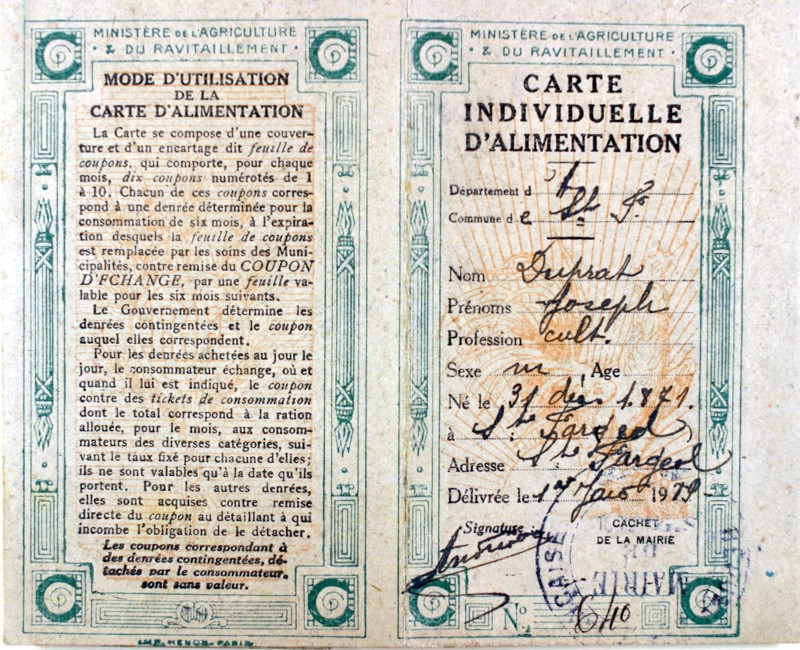 MINISTÈRE DE L'AGRICULTURE
& DU RAVITAILLEMENT
MODE D'UTILISATION
DE LA
CARTE D'ALIMENTATION
La Carte se compose d'une couver-
ture et d'un encartage dit feuille de
coupons, qui comporte, pour chaque
mois, dix coupons numérotés de 1
à 10. Chacun de ces coupons corres-
pond à une denrée déterminée pour la
consommation de six mois, à l'expira-
tion desquels la feuille de coupons
est remplacée par les soins des Muni-
cipalités, contre remise du COUPON
D'ÉCHANGE, par une feuille va-
lable pour les six mois suivants.
Le Gouvernement détermine les
denrées contingentées et le coupon
auquel elles correspondent.
Pour les denrées achetées au jour le
jour, le consommateur échange, où et
quand il lui est indiqué, le coupon
contre des tickets de consommation
dont le total correspond à la ration
allouée, pour le mois, aux consom-
mateurs des diverses catégories, sui-
vant le taux fixé pour chacune d'elles;
ils ne sont valables qu'à la date qu'ils
portent. Pour les autres denrées,
elles sont acquises contre remise
directe du coupon au détaillant à qui
incombe l'obligation de le détacher.
Les coupons correspondant à
des denrées contingentées, dé-
tachés par le consommateur,
sont sans valeur.
IMP. HENON. PARIS
MINISTÈRE DE L'AGRICULTURE
& DU RAVITAILLEMENT
CARTE
INDIVIDUELLE
D'ALIMENTATION
Département d
Commune de St F.
Nom Duprat
Prénoms Joseph
Profession cult.
Sexe m Age
Né le 31 déc 1871.
à St Fargeol
Adresse St Fargeol
Délivrée le 1er 1919
Signature: CACHET
DE LA MAIRIE
MAIRIE
DE
N° 640